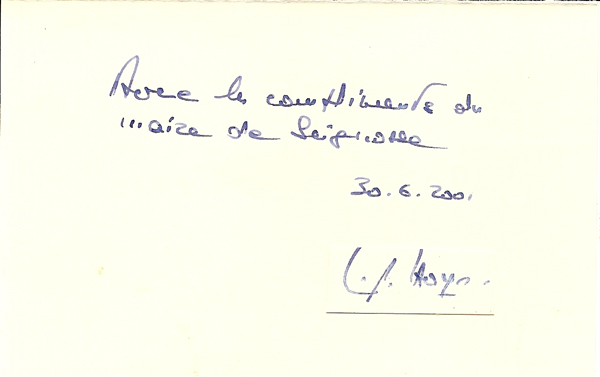 Avec les compliments du
maire de Seignosse
30.6.2001